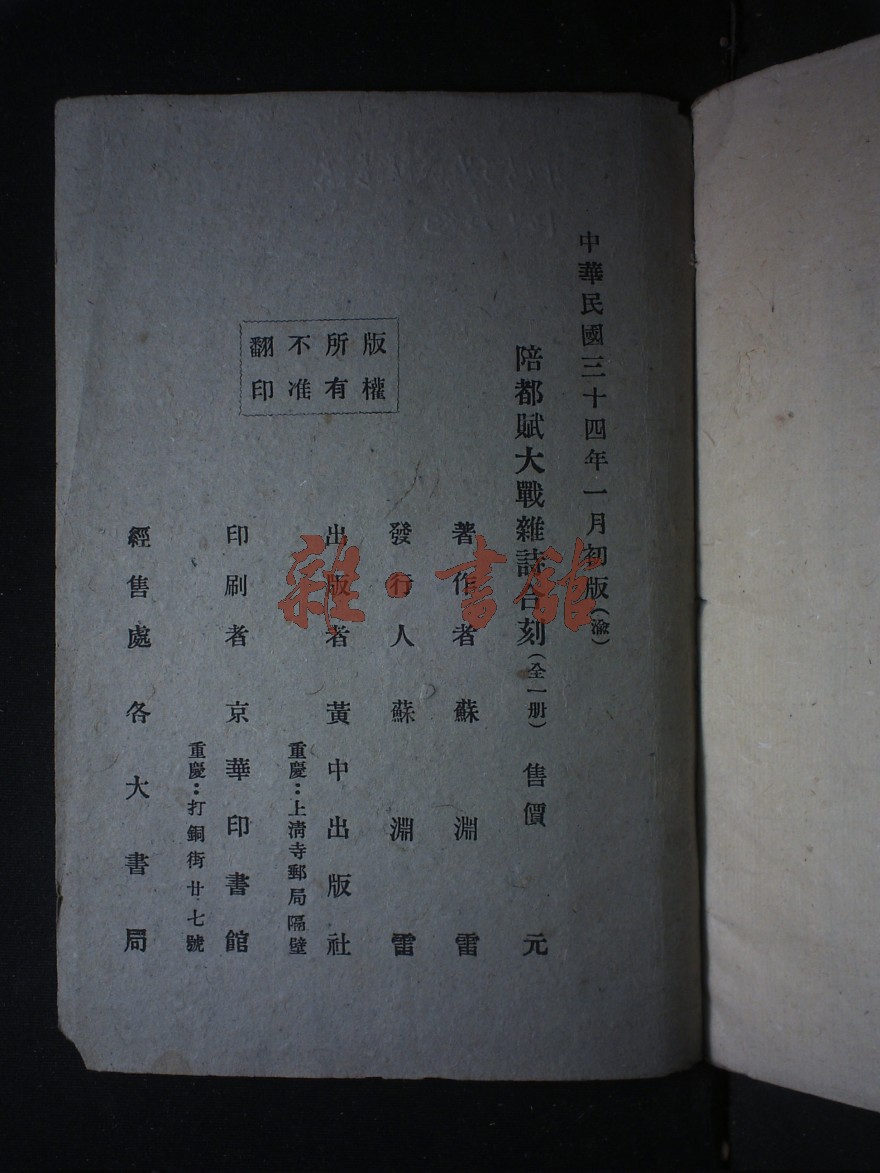 中華民國三十四年一月初版(渝)
陪都賦大戰雜詩合刻(全一册)售價 元
著作者 蘇淵雷
發行人 蘇淵雷
出版者 黃中出版社
重慶：上清寺郵局隔壁
印刷者 京華印書館
重慶：打銅街廿七號
經售處 各大書局
版權
所有
不准
翻印
雜·書館